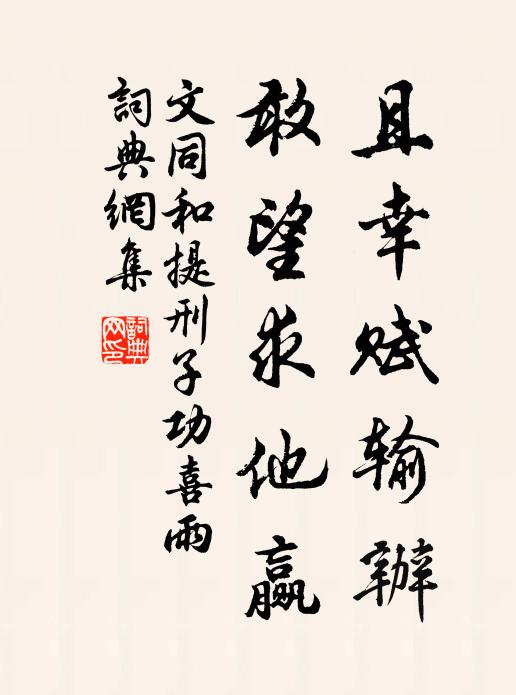 且幸赋输辦
敢望求他赢
文同和提刑子功喜雨
词典網集
詞典网印